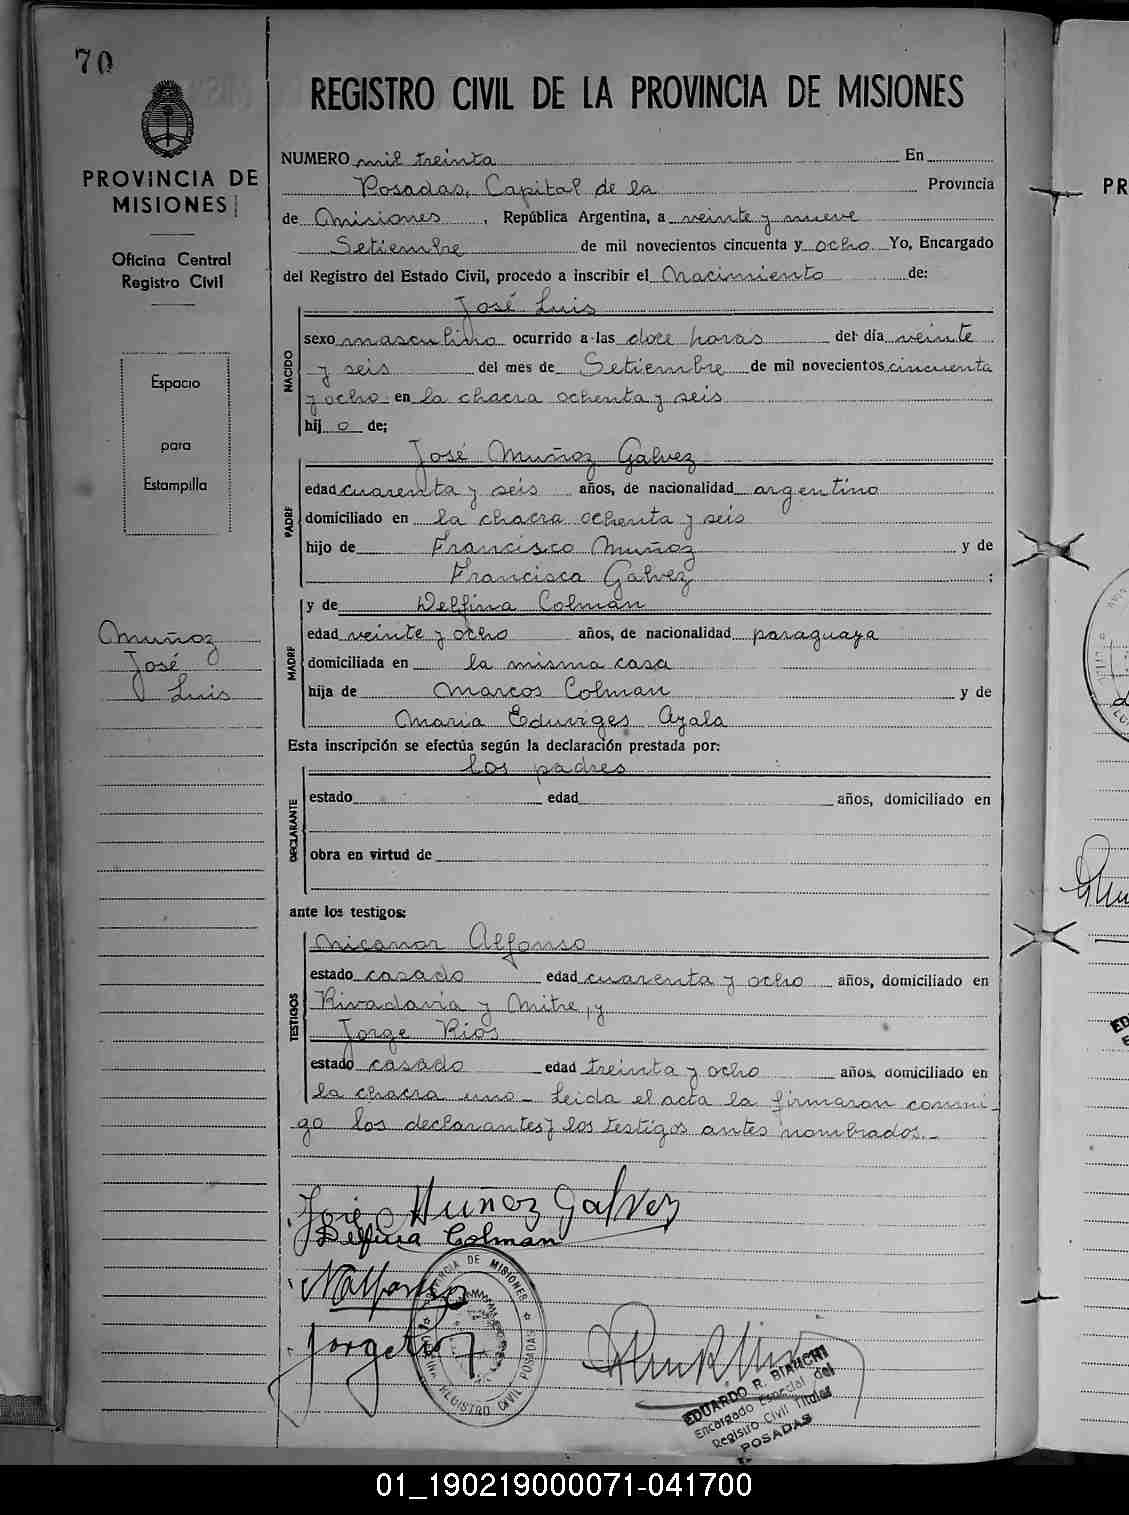 70
REGISTRO CIVIL DE LA PROVINCIA DE MISIONES
PROVINCIA DE
MISIONES
Oficina Central
Registro Civil
Espacio
para
Estampilla
Muñoz
José
Luis
NUMERO mil treinta En
Posadas, Capital de la Provincia
de Misiones, República Argentina, a veinte y nueve
Setiembre de mil novecientos cincuenta y ocho Yo, Encargado
del Registro del Estado Civil, procedo a inscribir el Nacimiento de:
José Luis
NACIDO
sexo masculino ocurrido a las doce horas del día veinte
y seis del mes de Setiembre de mil novecientos cincuenta
y ocho en la chacra ochenta y seis
hij o de;
José Muñoz Galvez
PADRE
edad cuarenta y seis años, de nacionalidad argentino
domiciliado en la chacra ochenta y seis
hijo de Francisco Muñoz y de
Francisca Galvez ;
y de Delfina Colman
MADRE
edad veinte y ocho años, de nacionalidad paraguaya
domiciliada en la misma casa
hija de Marcos Colman y de
Maria Eduviges Ayala
Esta inscripción se efectúa según la declaración prestada por:
los padres
DECLARANTE
estado edad años, domiciliado en
obra en virtud de
ante los testigos:
Nicanor Alfonso
TESTIGOS
estado casado edad cuarenta y ocho años, domiciliado en
Rivadavia y Mitre, y
Jorge Rios
estado casado edad treinta y ocho años, domiciliado en
la chacra uno- Leida el acta la firmaron conmi-
go los declarantes y los testigos antes nombrados.-
José Muñoz Galvez
Delfina Colman
NAlfonso
Jorge Rios
PROVINCIA DE MISIONES
REGISTRO CIVIL POSADAS
EDUARDO R. BIANCHI
Encargado Especial del
Registro Civil Titular
POSADAS
PR
01_190219000071-041700